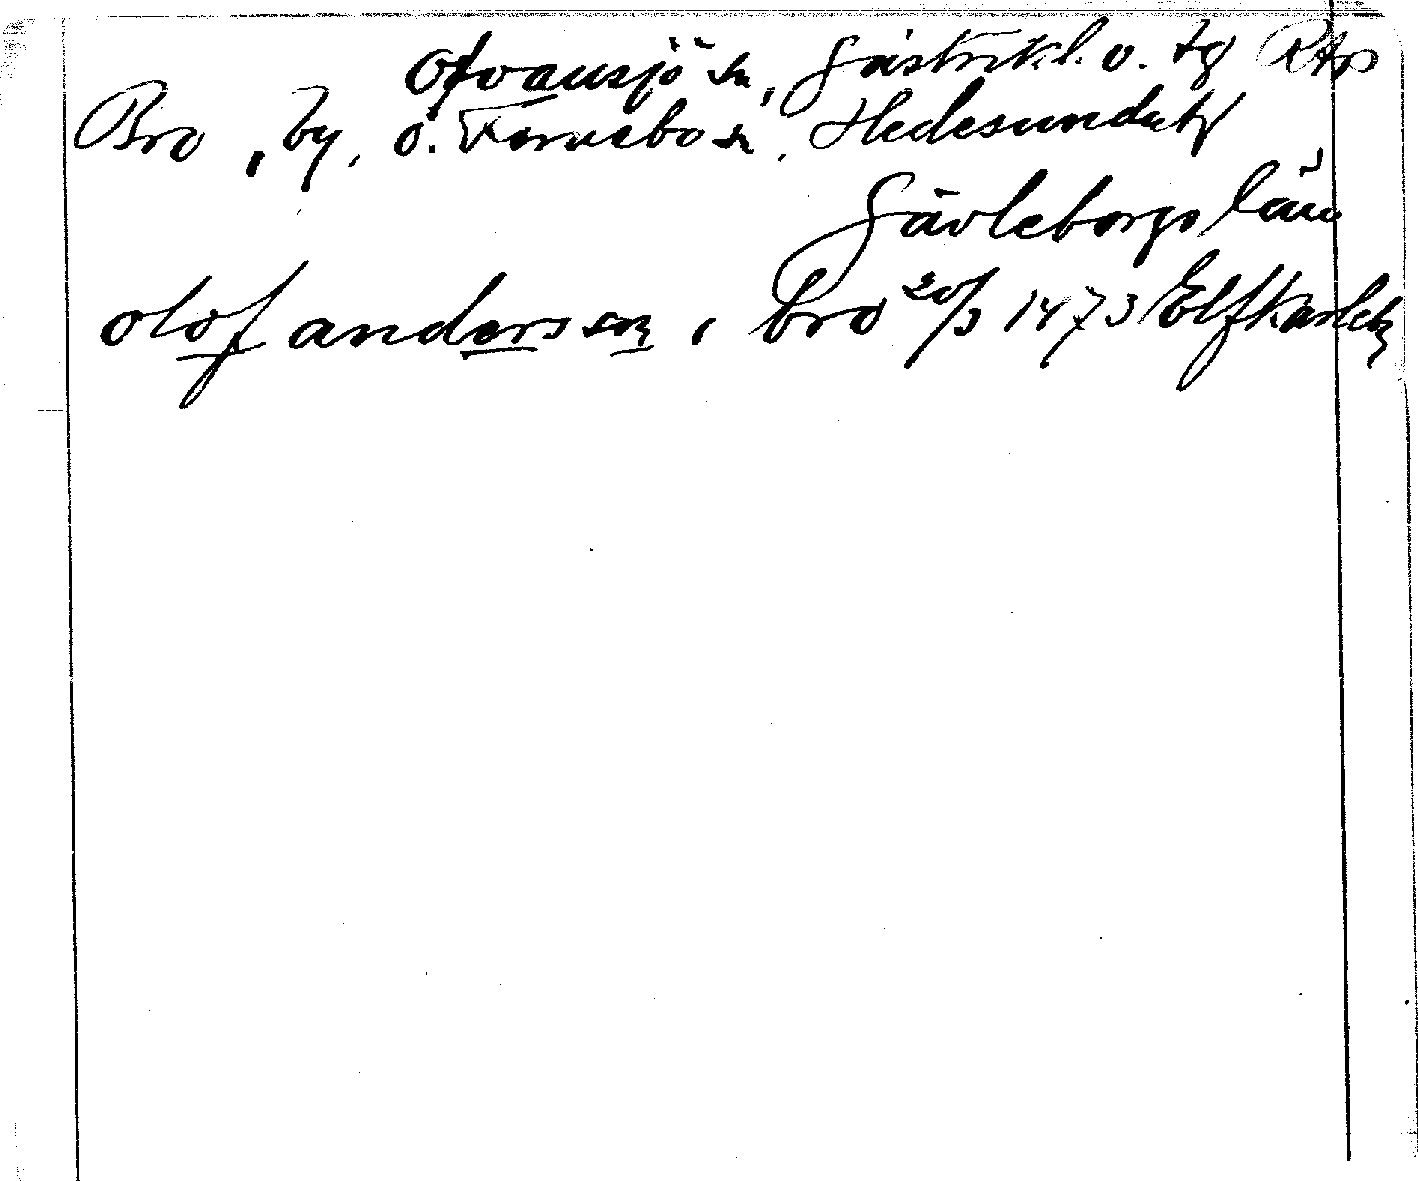 Ofvansjö sn, Gästrikl. ö. tg RAp
Bro, by, Ö. Färnebo sn, Hedesunda tg
Gävleborgs län
olof andersson i bro 20/3 1473 Elfkarleby